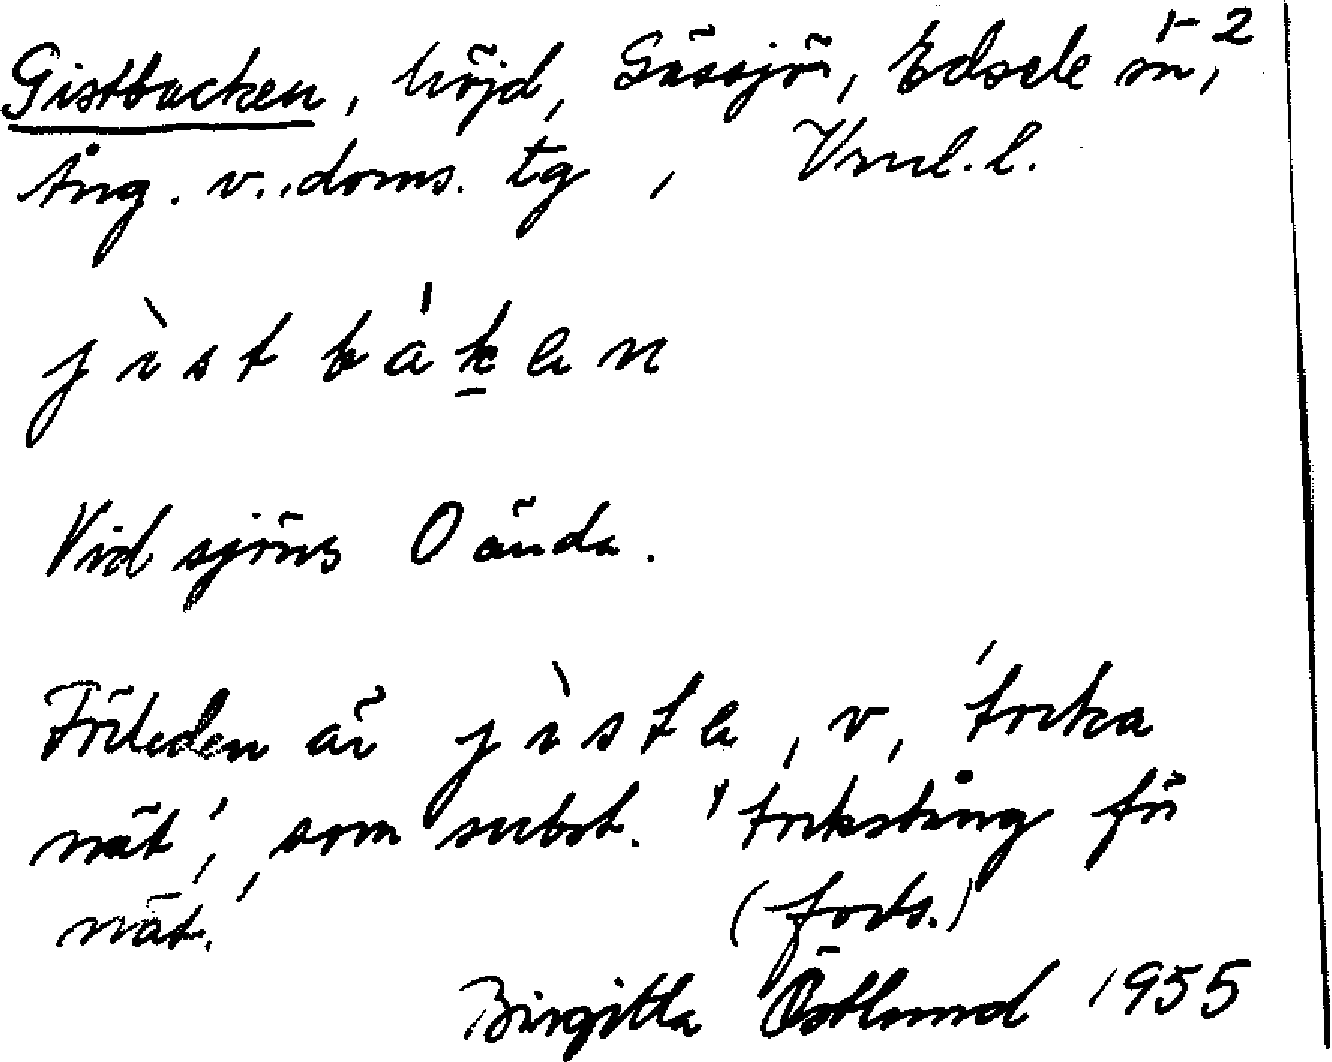 Gistbacken, höjd, Gåssjö, Edsele sn, 1-2
Ång. v. doms. tg, Vnl. l.
jìstbákan
Vid sjöns O ända.
Förleden är jìsta, v, 'torka
nät', som subst. 'torkstång för
nät.' (forts.)
Birgitta Östlund 1955